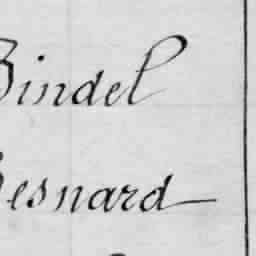 Bindel
Besnard